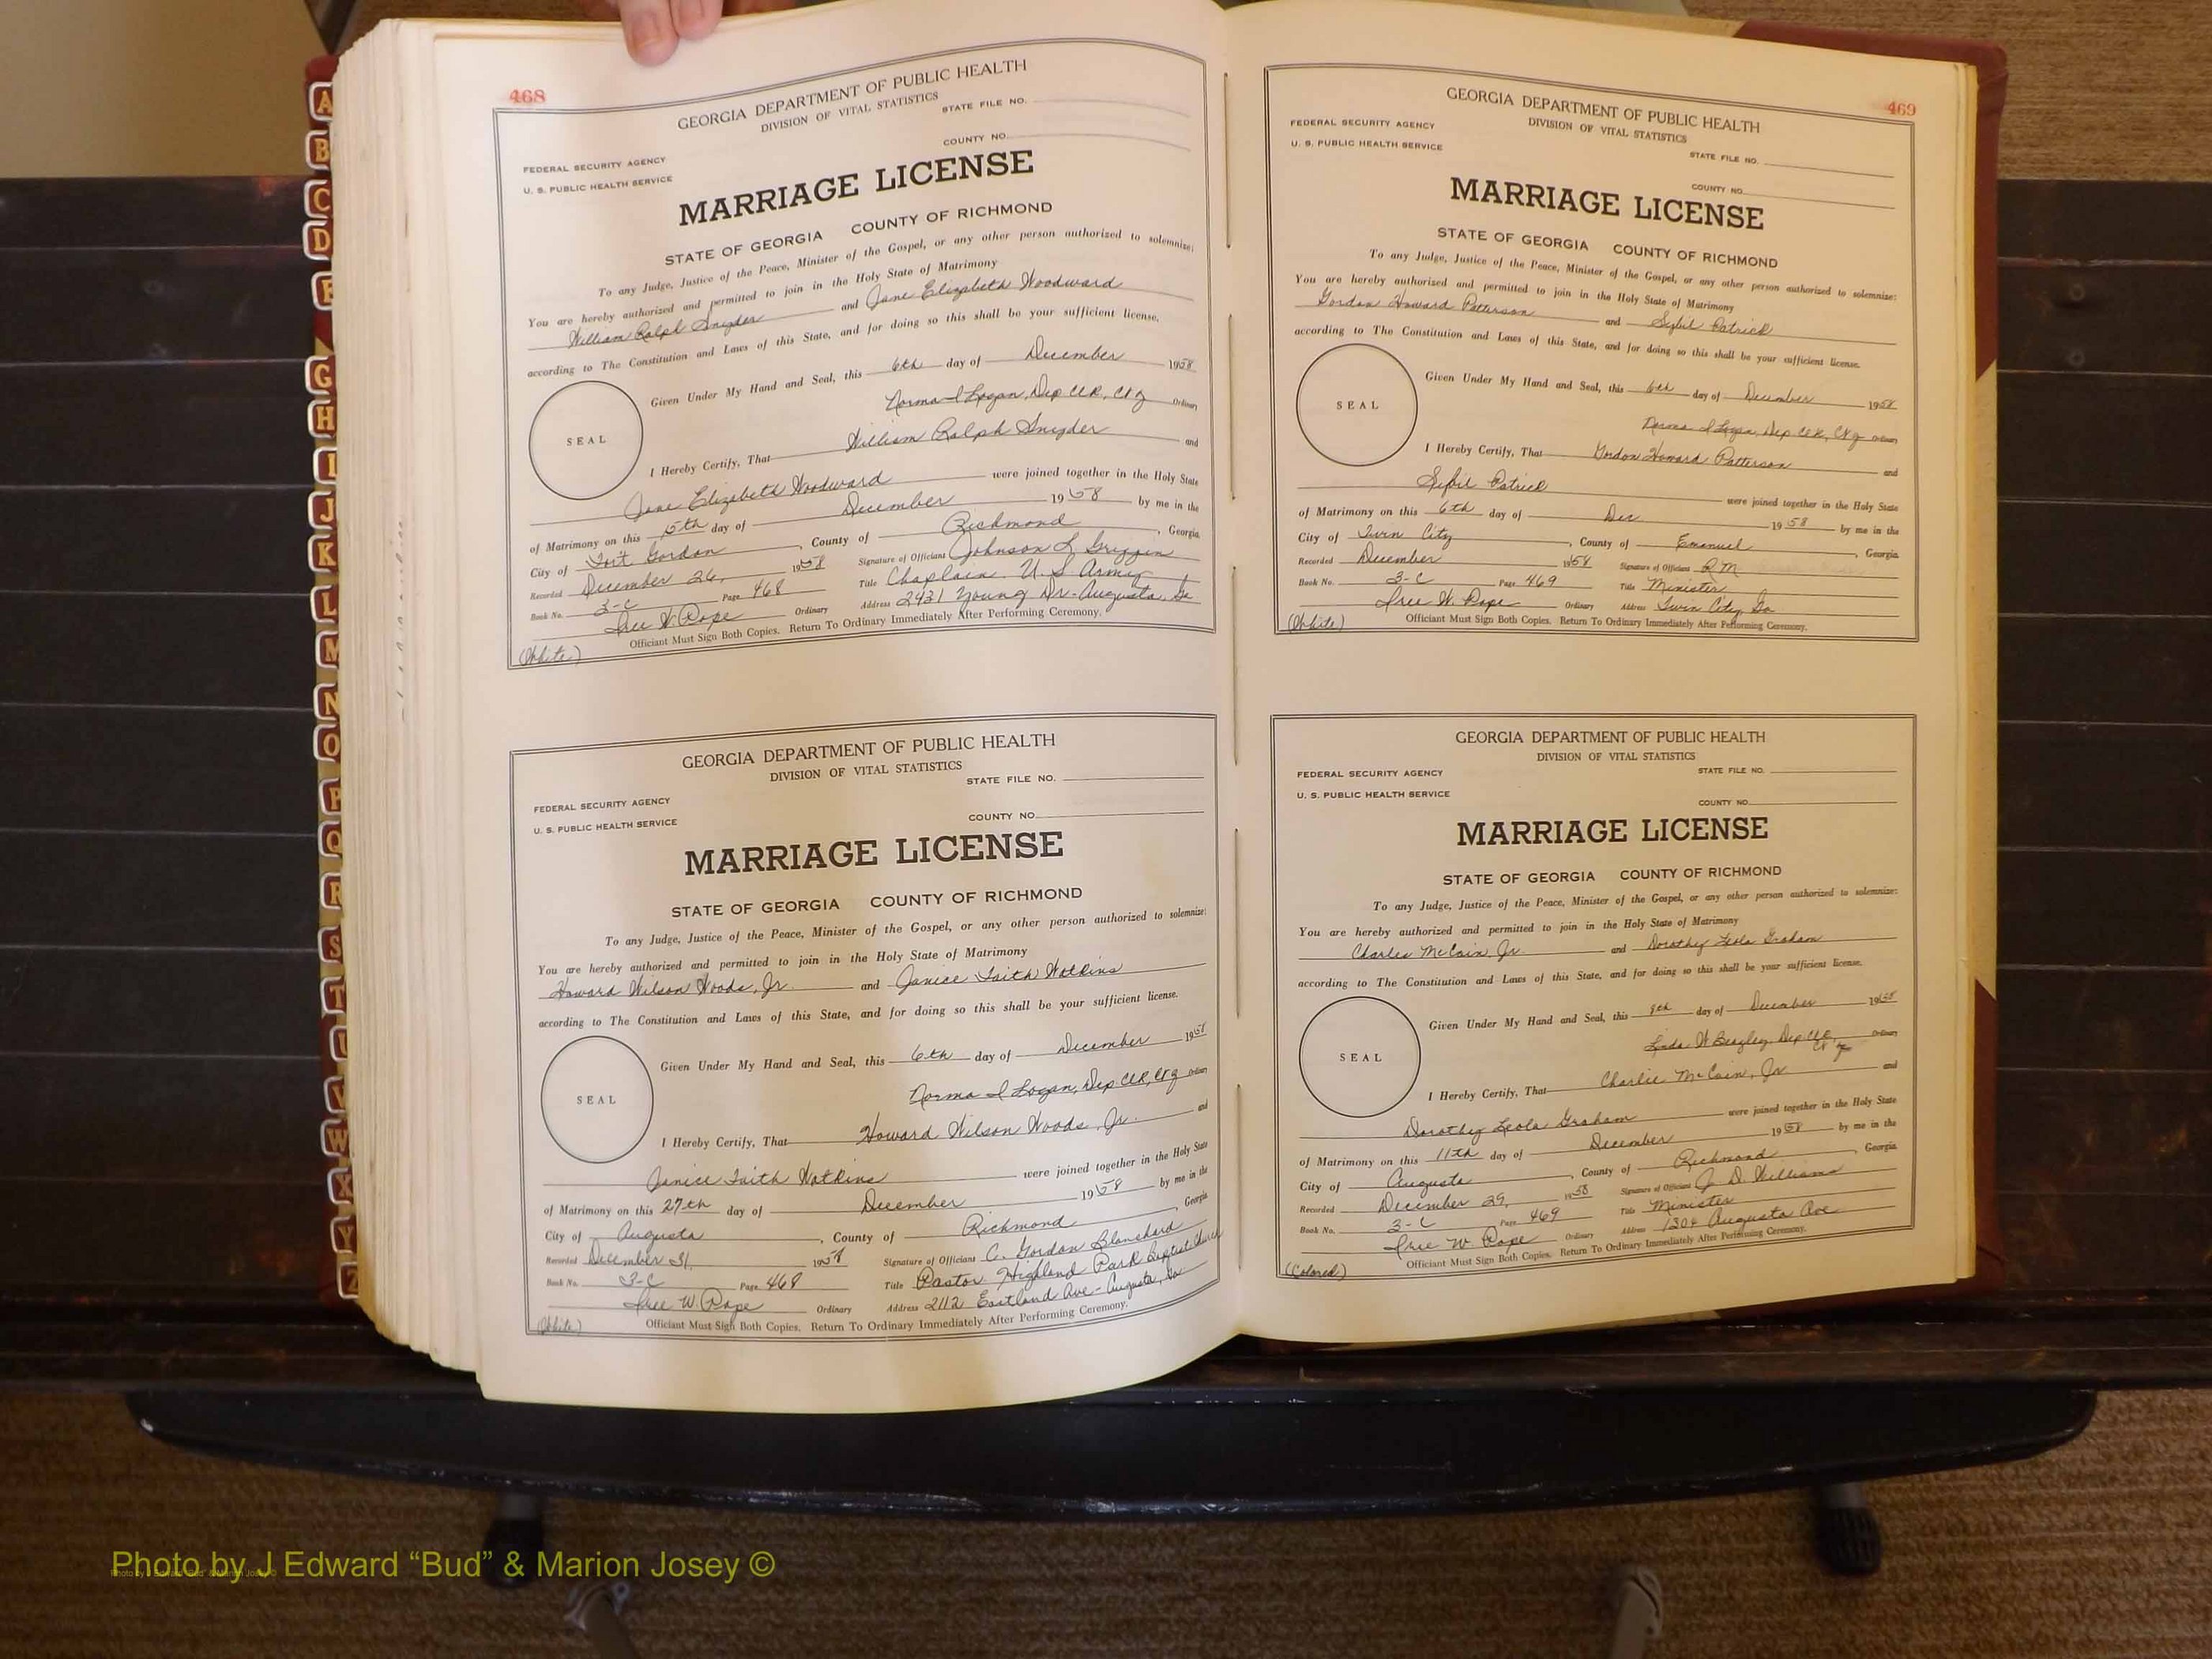 468
GEORGIA DEPARTMENT OF PUBLIC HEALTH
DIVISION OF VITAL STATISTICS
STATE FILE NO.
COUNTY NO.
FEDERAL SECURITY AGENCY
U. S. PUBLIC HEALTH SERVICE
MARRIAGE LICENSE
STATE OF GEORGIA COUNTY OF RICHMOND
To any Judge, Justice of the Peace, Minister of the Gospel, or any other person authorized to solemnize:
You are hereby authorized and permitted to join in the Holy State of Matrimony
William Ralph Snyder and Jane Elizabeth Woodward
according to The Constitution and Laws of this State, and for doing so this shall be your sufficient license.
Given Under My Hand and Seal, this 6th day of December 1958
Norma I Logan, Dep Clk, Ct Ordinary
SEAL
I Hereby Certify, That William Ralph Snyder and
Jane Elizabeth Woodward were joined together in the Holy State
of Matrimony on this day of December 1958 by me in the
City of Fort Gordon, County of Richmond, Georgia
Recorded December 26, 1958 Signature of Officiant Johnson L Griffin
Book No. 3-C Page 468 Title Chaplain U.S Army
Ordinary Address 2431 Young Dr-Augusta, Ga
Officiant Must Sign Both Copies. Return To Ordinary Immediately After Performing Ceremony.
(White)
GEORGIA DEPARTMENT OF PUBLIC HEALTH
DIVISION OF VITAL STATISTICS
STATE FILE NO.
FEDERAL SECURITY AGENCY
U. S. PUBLIC HEALTH SERVICE
COUNTY NO.
MARRIAGE LICENSE
STATE OF GEORGIA COUNTY OF RICHMOND
To any Judge, Justice of the Peace, Minister of the Gospel, or any other person authorized to solemnize:
You are hereby authorized and permitted to join in the Holy State of Matrimony
Howard Wilson Woods, Jr. and Janice Faith Watkins
according to The Constitution and Laws of this State, and for doing so this shall be your sufficient license.
Given Under My Hand and Seal, this 6th day of December 1958
Norma I Logan, Dep Clk, Ct Ordinary
SEAL
I Hereby Certify, That Howard Wilson Woods, Jr. and
Janice Faith Watkins were joined together in the Holy State
of Matrimony on this 27th day of December 1958 by me in the
City of Augusta, County of Richmond, Georgia
Recorded December 31, 1958 Signature of Officiant C. Gordon Blanchard
Book No. 3-C Page 468 Title Pastor Highland Park Baptist Church
Ordinary Address 2112 Eastland Ave-Augusta, Ga
Officiant Must Sign Both Copies. Return To Ordinary Immediately After Performing Ceremony.
(White)
469
GEORGIA DEPARTMENT OF PUBLIC HEALTH
DIVISION OF VITAL STATISTICS
FEDERAL SECURITY AGENCY
U. S. PUBLIC HEALTH SERVICE
STATE FILE NO.
COUNTY NO.
MARRIAGE LICENSE
STATE OF GEORGIA COUNTY OF RICHMOND
To any Judge, Justice of the Peace, Minister of the Gospel, or any other person authorized to solemnize:
You are hereby authorized and permitted to join in the Holy State of Matrimony
Gordon Howard Patterson and Sybil Patrick
according to The Constitution and Laws of this State, and for doing so this shall be your sufficient license.
Given Under My Hand and Seal, this 6th day of December 1958
Norma I Logan, Dep Clk, Ct Ordinary
SEAL
I Hereby Certify, That Gordon Howard Patterson and
Sybil Patrick were joined together in the Holy State
of Matrimony on this 6th day of Dec 1958 by me in the
City of Twin City, County of Emanuel, Georgia
Recorded December 1958 Signature of Officiant R M
Book No. 3-C Page 469 Title Minister
Ordinary Address Twin City, Ga
Officiant Must Sign Both Copies. Return To Ordinary Immediately After Performing Ceremony.
(White)
GEORGIA DEPARTMENT OF PUBLIC HEALTH
DIVISION OF VITAL STATISTICS
FEDERAL SECURITY AGENCY
STATE FILE NO.
U. S. PUBLIC HEALTH SERVICE
COUNTY NO.
MARRIAGE LICENSE
STATE OF GEORGIA COUNTY OF RICHMOND
To any Judge, Justice of the Peace, Minister of the Gospel, or any other person authorized to solemnize:
You are hereby authorized and permitted to join in the Holy State of Matrimony
Charles McCain, Jr and Dorothy Leola Graham
according to The Constitution and Laws of this State, and for doing so this shall be your sufficient license.
Given Under My Hand and Seal, this 9th day of December 1958
Linda W Beazley, Dep Clk Ct Ordinary
SEAL
I Hereby Certify, That Charlie McCain, Jr and
Dorothy Leola Graham were joined together in the Holy State
of Matrimony on this 11th day of December 1958 by me in the
City of Augusta, County of Richmond, Georgia
Recorded December 29, 1958 Signature of Officiant J. D. Williams
Book No. 3-C Page 469 Title Minister
Ordinary Address 1304 Augusta Ave
Officiant Must Sign Both Copies. Return To Ordinary Immediately After Performing Ceremony.
(Colored)
A
B
C
D
F
G
H
I
J
K
L
M
N
O
P
Q
R
S
T
U
V
W
X
Y
Z
Photo by J Edward “Bud” & Marion Josey ©